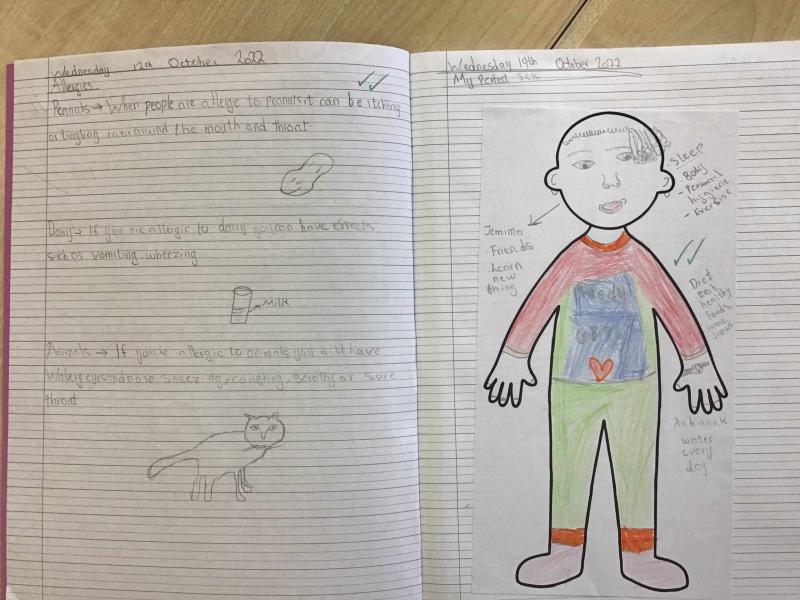 Wednesday 12th October 2022
Allergies
Peanuts → When people are allergic to peanuts it can be itching
or tingling in or around the mouth and throat.
Dairy → If you are allergic to dairy you can have effects
such as vomiting wheezing
Milk
Animals → If you're allergic to animals you will have
Watery eyes and nose sneezing, coughing, scrathy or sore
throat
Wednesday 19th October 2022
My Perfect Self
• sleep
• Body
- Personal
hygiene
- Exercise
Jemima
• Friends
• Learn
new
thing
Diet
eat
healthy
foods
And drink
water
every
day